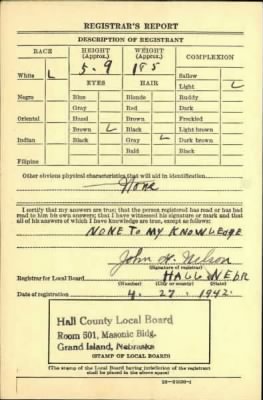 REGISTRAR'S REPORT
DESCRIPTION OF REGISTRANT
RACE HEIGHT (Approx.) WEIGHT (Approx.) COMPLEXION
5-9 195
White L Sallow
EYES HAIR Light L
Negro Blue Blonde Ruddy
Gray Red Dark
Oriental Hazel Brown Freckled
Brown L Black Light brown
Indian Black Gray L Dark brown
Bald Black
Filipino
Other obvious physical characteristics that will aid in identification
None
I certify that my answers are true; that the person registered has read or has had
read to him his own answers; that I have witnessed his signature or mark and that
all of his answers of which I have knowledge are true, except as follows:
NONE TO MY KNOWLEDGE
John H. Nelson
(Signature of registrar)
Registrar for Local Board HALL NEBR
(Number) (City or county) (State)
Date of registration 4. 27. 1942.
Hall County Local Board
Room 501, Masonic Bldg.
Grand Island, Nebraska
(STAMP OF LOCAL BOARD)
(The stamp of the Local Board having jurisdiction of the registrant
shall be placed in the above space)